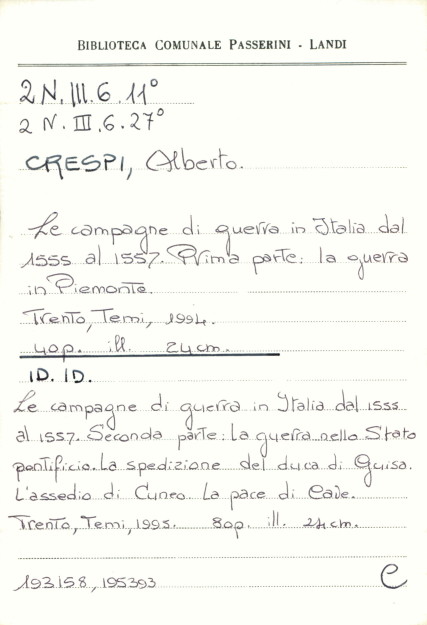 BIBLIOTECA COMUNALE PASSERINI - LANDI
2 N. III. 6. 11°
2 N. III. 6. 27°
CRESPI, Alberto.
Le campagne di guerra in Italia dal
1555 al 1557. Prima parte: la guerra
in Piemonte.
Trento, Temi, 1994.
40p. ill. 24cm.
ID. ID.
Le campagne di guerra in Italia dal 1555
al 1557. Seconda parte: La guerra nello Stato
pontificio. La spedizione del duca di Guisa.
L'assedio di Cuneo. La pace di Cave.
Trento, Temi, 1995. 80p. ill. 24cm.
193158, 195393
C